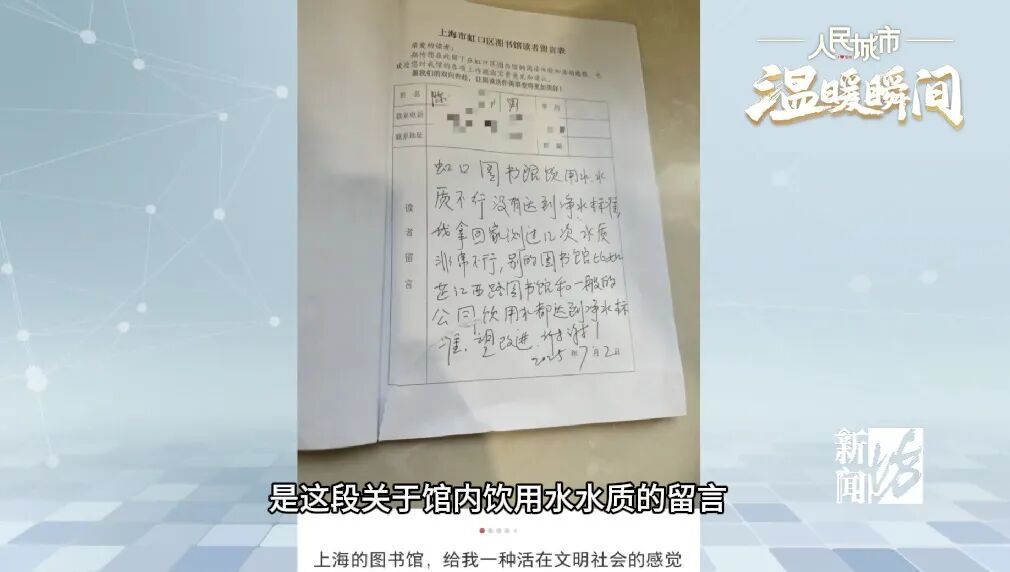 人民城市
温暖瞬间
上海市虹口区图书馆读者留言表
亲爱的读者：
姓名
陈
联系电话
联系地址
邮编
读者留言
虹口图书馆饮用水水
质不行没有达到净水标准
我拿回家测过几次水质
非常不行，别的图书馆比如
芷江西路图书馆和一般的
公司饮用水都达到净水标
准，望改进，谢谢！
2025年7月2日
新闻坊
是这段关于馆内饮用水水质的留言
上海的图书馆，给我一种活在文明社会的感觉